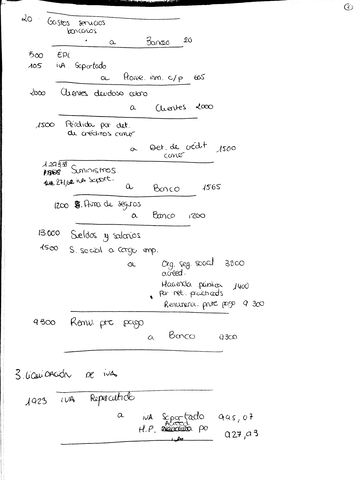 20 Gastos servicios
bancarios
a Banco 20
500 EPI
105 IVA Soportado
a Prove. inm. c/p 605
2000 Clientes dudoso cobro
a Clientes 2000
1500 Pérdida por det.
de créditos comé
a Det. de crédit 1500
comé
Suministros
271,62 IVA Soport.
a Banco 1565
1200 Prima de seguros
a Banco 1200
13000 Sueldos y salarios
1500 S. social a cargo emp.
a Org. seg social 3800
acreed.
Hacienda pública 1400
por ret. practicads
Remunera. pnte pago 9 300
9300 Remu. pte pago
a Banco 9300
3. LIQUIDACIÓN DE IVA
1923 IVA Repercutido
a IVA Soportado 995,07
H.P. Acreed po 927,93